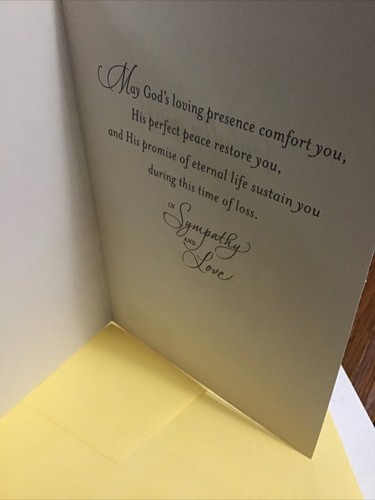 May God's loving presence comfort you,
His perfect peace restore you,
and His promise of eternal life sustain you
during this time of loss.
IN
Sympathy
AND
Love